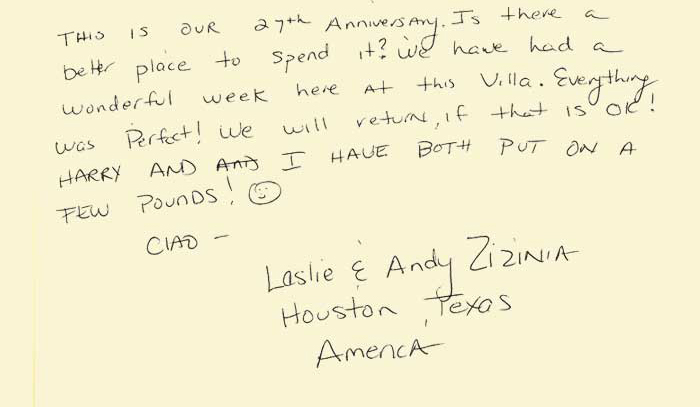 THIS IS OUR 27th Anniversary. Is there a
better place to spend it? We have had a
wonderful week here At this Villa. Everything
was Perfect! We will return, if that is OK!
HARRY AND AND I HAVE BOTH PUT ON A
FEW POUNDS! ☺
CIAO –
Laslie & Andy ZIZINIA
Houston, Texas
AmericA